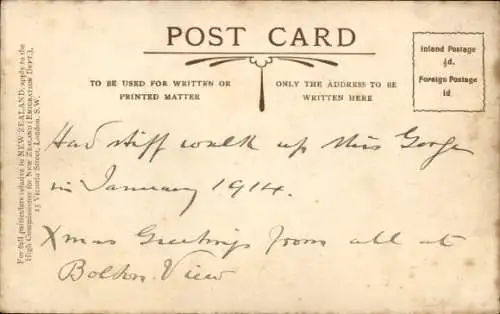 POST CARD
TO BE USED FOR WRITTEN OR
PRINTED MATTER
ONLY THE ADDRESS TO BE
WRITTEN HERE
Inland Postage
½d.
Foreign Postage
1d.
For full particulars relative to NEW ZEALAND, apply to the
High Commissioner for New Zealand (Emigration Dept.),
13 Victoria Street, London, S.W.
Had stiff walk up this Gorge
in January 1914.
Xmas Greetings from all at
Bolton View